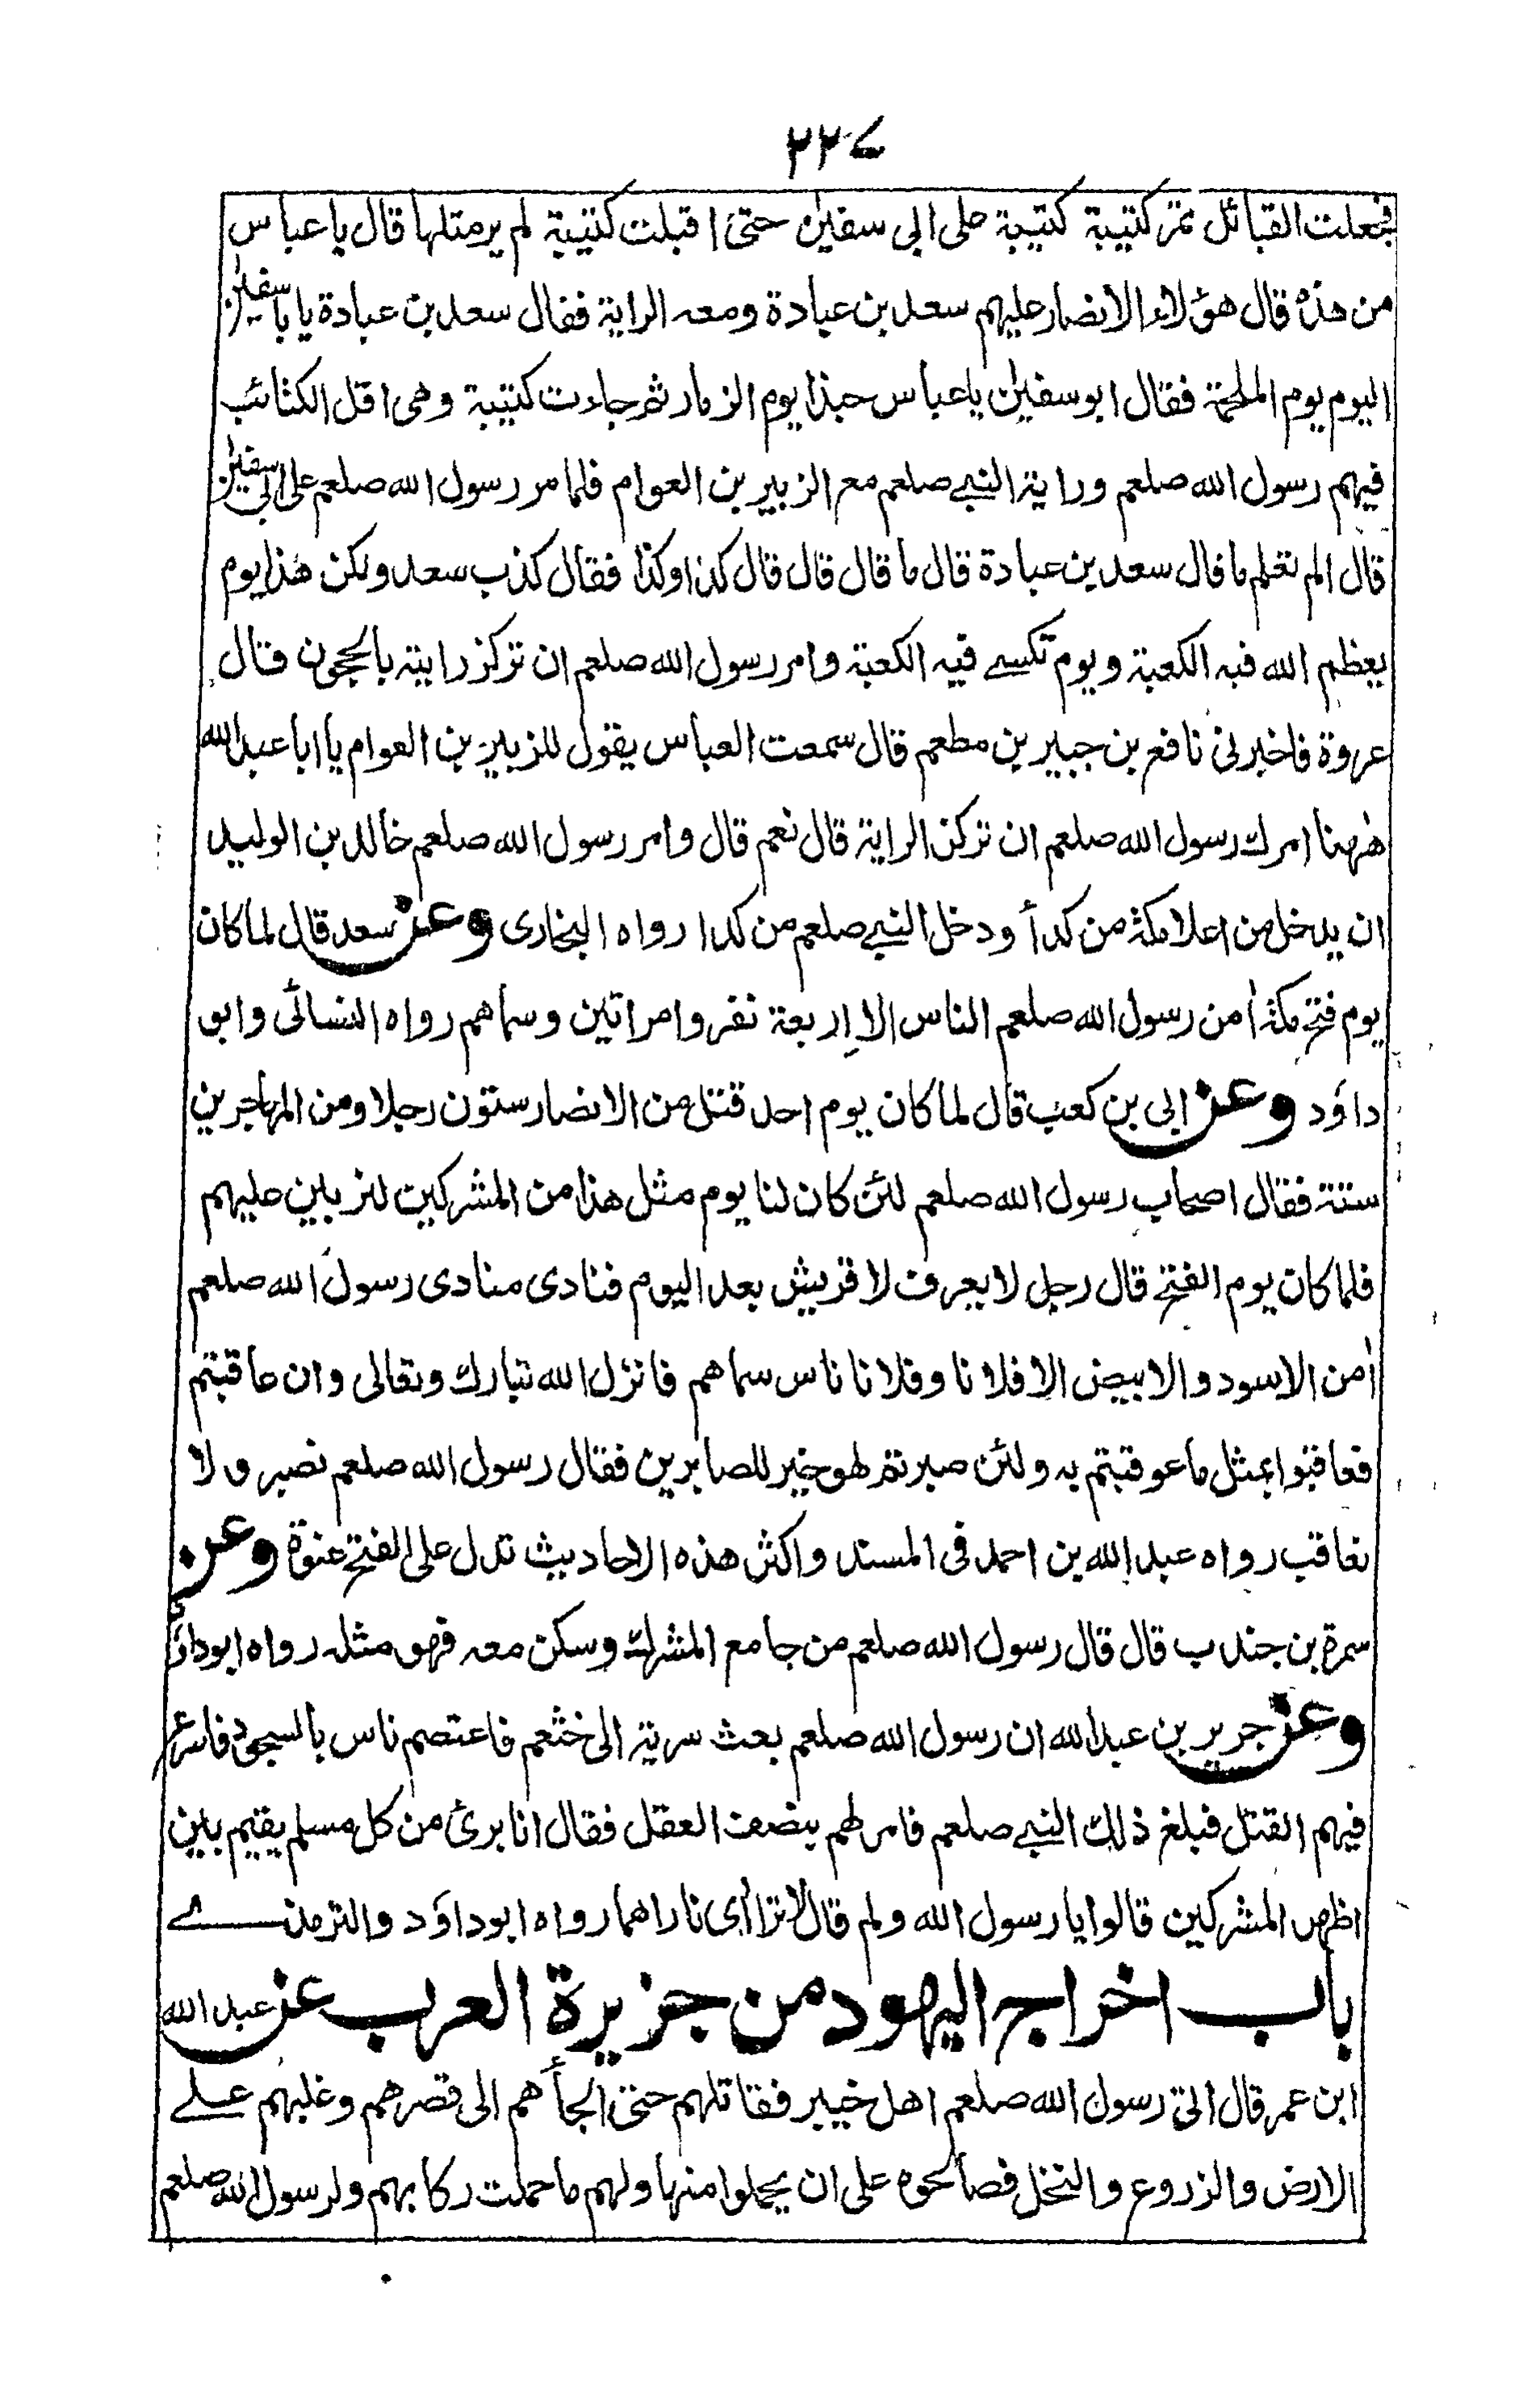 ٢٢٧
فجعلت القبائل تمر كتيبة كتيبة على ابى سفيٰن حتى اقبلت كتيبة لم ير مثلها قال يا عباس
من هذه قال هؤلاء الانصار عليهم سعد بن عبادة ومعه الراية فقال سعد بن عبادة يا با سفيٰن
اليوم يوم الملحمة فقال ابو سفيٰن يا عباس حبذا يوم الزمار ثم جاءت كتيبة وهى اقل الكتائب
فيهم رسول الله صلعم وراية النبے صلعم مع الزبير بن العوام فلما مر رسول الله صلعم على ابى سفيٰن
قال الم تعلم ما قال سعد بن عبادة قال ما قال قال قال كذا وكذا فقال كذب سعد ولكن هذا يوم
يعظم الله فيه الكعبة ويوم تكسے فيه الكعبة وامر رسول الله صلعم ان تركز رايته بالحجون قال
عروة فاخبرنى نافع بن جبير بن مطعم قال سمعت العباس يقول للزبير بن العوام يا ابا عبد الله
هٰهنا امرك رسول الله صلعم ان تركز الراية قال نعم قال وامر رسول الله صلعم خالد بن الوليد
ان يدخل من اعلا مكة من كدأ ودخل النبے صلعم من كدا رواه البخارى وعن سعد قال لما كان
يوم فتح مكة اٰمن رسول الله صلعم الناس الا اربعة نفر وامراتين وسماهم رواه النسائى وابو
داؤد وعن ابى بن كعب قال لما كان يوم احد قتل من الانصار ستون رجلا ومن المهاجرين
ستة فقال اصحاب رسول الله صلعم لئن كان لنا يوم مثل هذا من المشركين لنربين عليهم
فلما كان يوم الفتح قال رجل لا يعرف لا قريش بعد اليوم فنادى منادى رسول الله صلعم
اٰمن الاسود والابيض الا فلانا وفلانا ناس سماهم فانزل الله تبارك وتعالى وان عاقبتم
فعاقبوا بمثل ما عوقبتم به ولئن صبرتم لهو خير للصابرين فقال رسول الله صلعم نصبر ولا
نعاقب رواه عبد الله بن احمد فى المسند واكثر هذه الاحاديث تدل على الفتح عنوة وعن
سمرة بن جندب قال قال رسول الله صلعم من جامع المشرك وسكن معه فهو مثله رواه ابوداؤد
وعن جرير بن عبدالله ان رسول الله صلعم بعث سرية الى خثعم فاعتصم ناس بالسجود فاسرع
فيهم القتل فبلغ ذلك النبے صلعم فامر لهم بنصف العقل فقال انا برئ من كل مسلم يقيم بين
اظهر المشركين قالوا يا رسول الله ولم قال لا تراأى ناراهما رواه ابو داؤد والترمذے
باب اخراج اليهود من جزيرة العرب عن عبد الله
ابن عمر قال اتى رسول الله صلعم اهل خيبر فقاتلهم حتى الجأهم الى قصرهم وغلبهم علے
الارض والزروع والنخل فصالحوه على ان يجلوا منها ولهم ما حملت ركابهم ولرسول الله صلعم